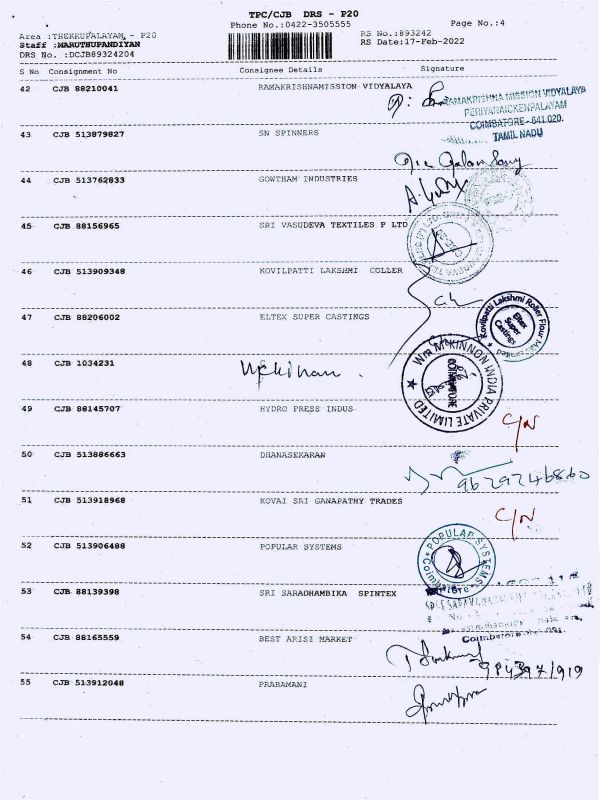 TPC/CJB DRS - P20
Phone No.:0422-3505555
Page No.:4
Area :THEKKUPALAYAM, - P20
Staff :MARUTHUPANDIYAN
DRS No. :DCJB89324204
RS No.:893242
RS Date:17-Feb-2022
S No Consignment No Consignee Details Signature
42 CJB 88210041 RAMAKRISHNAMISSION VIDYALAYA
RAMAKRISHNA MISSION VIDYALAYA
PERIYANAICKENPALAYAM
COIMBATORE - 641 020.
TAMIL NADU
43 CJB 513879827 SN SPINNERS
44 CJB 513762833 GOWTHAM INDUSTRIES
45 CJB 88156965 SRI VASUDEVA TEXTILES P LTD
46 CJB 513909348 KOVILPATTI LAKSHMI COLLER
47 CJB 88206002 ELTEX SUPER CASTINGS
Kovilpatti Lakshmi Roller Flour
Eltex
Super
Castings
48 CJB 1034231
Wm MCKINNON INDIA PRIVATE LIMITED
COIMBATORE
49 CJB 88145707 HYDRO PRESS INDUS
C/N
50 CJB 513886663 DHANASEKARAN
9629246860
51 CJB 513918968 KOVAI SRI GANAPATHY TRADES
C/N
52 CJB 513906488 POPULAR SYSTEMS
POPULAR SYSTEMS
Coimbatore
53 CJB 88139398 SRI SARADHAMBIKA SPINTEX
54 CJB 88165559 BEST ARISI MARKET
55 CJB 513912048 PRABAMANI